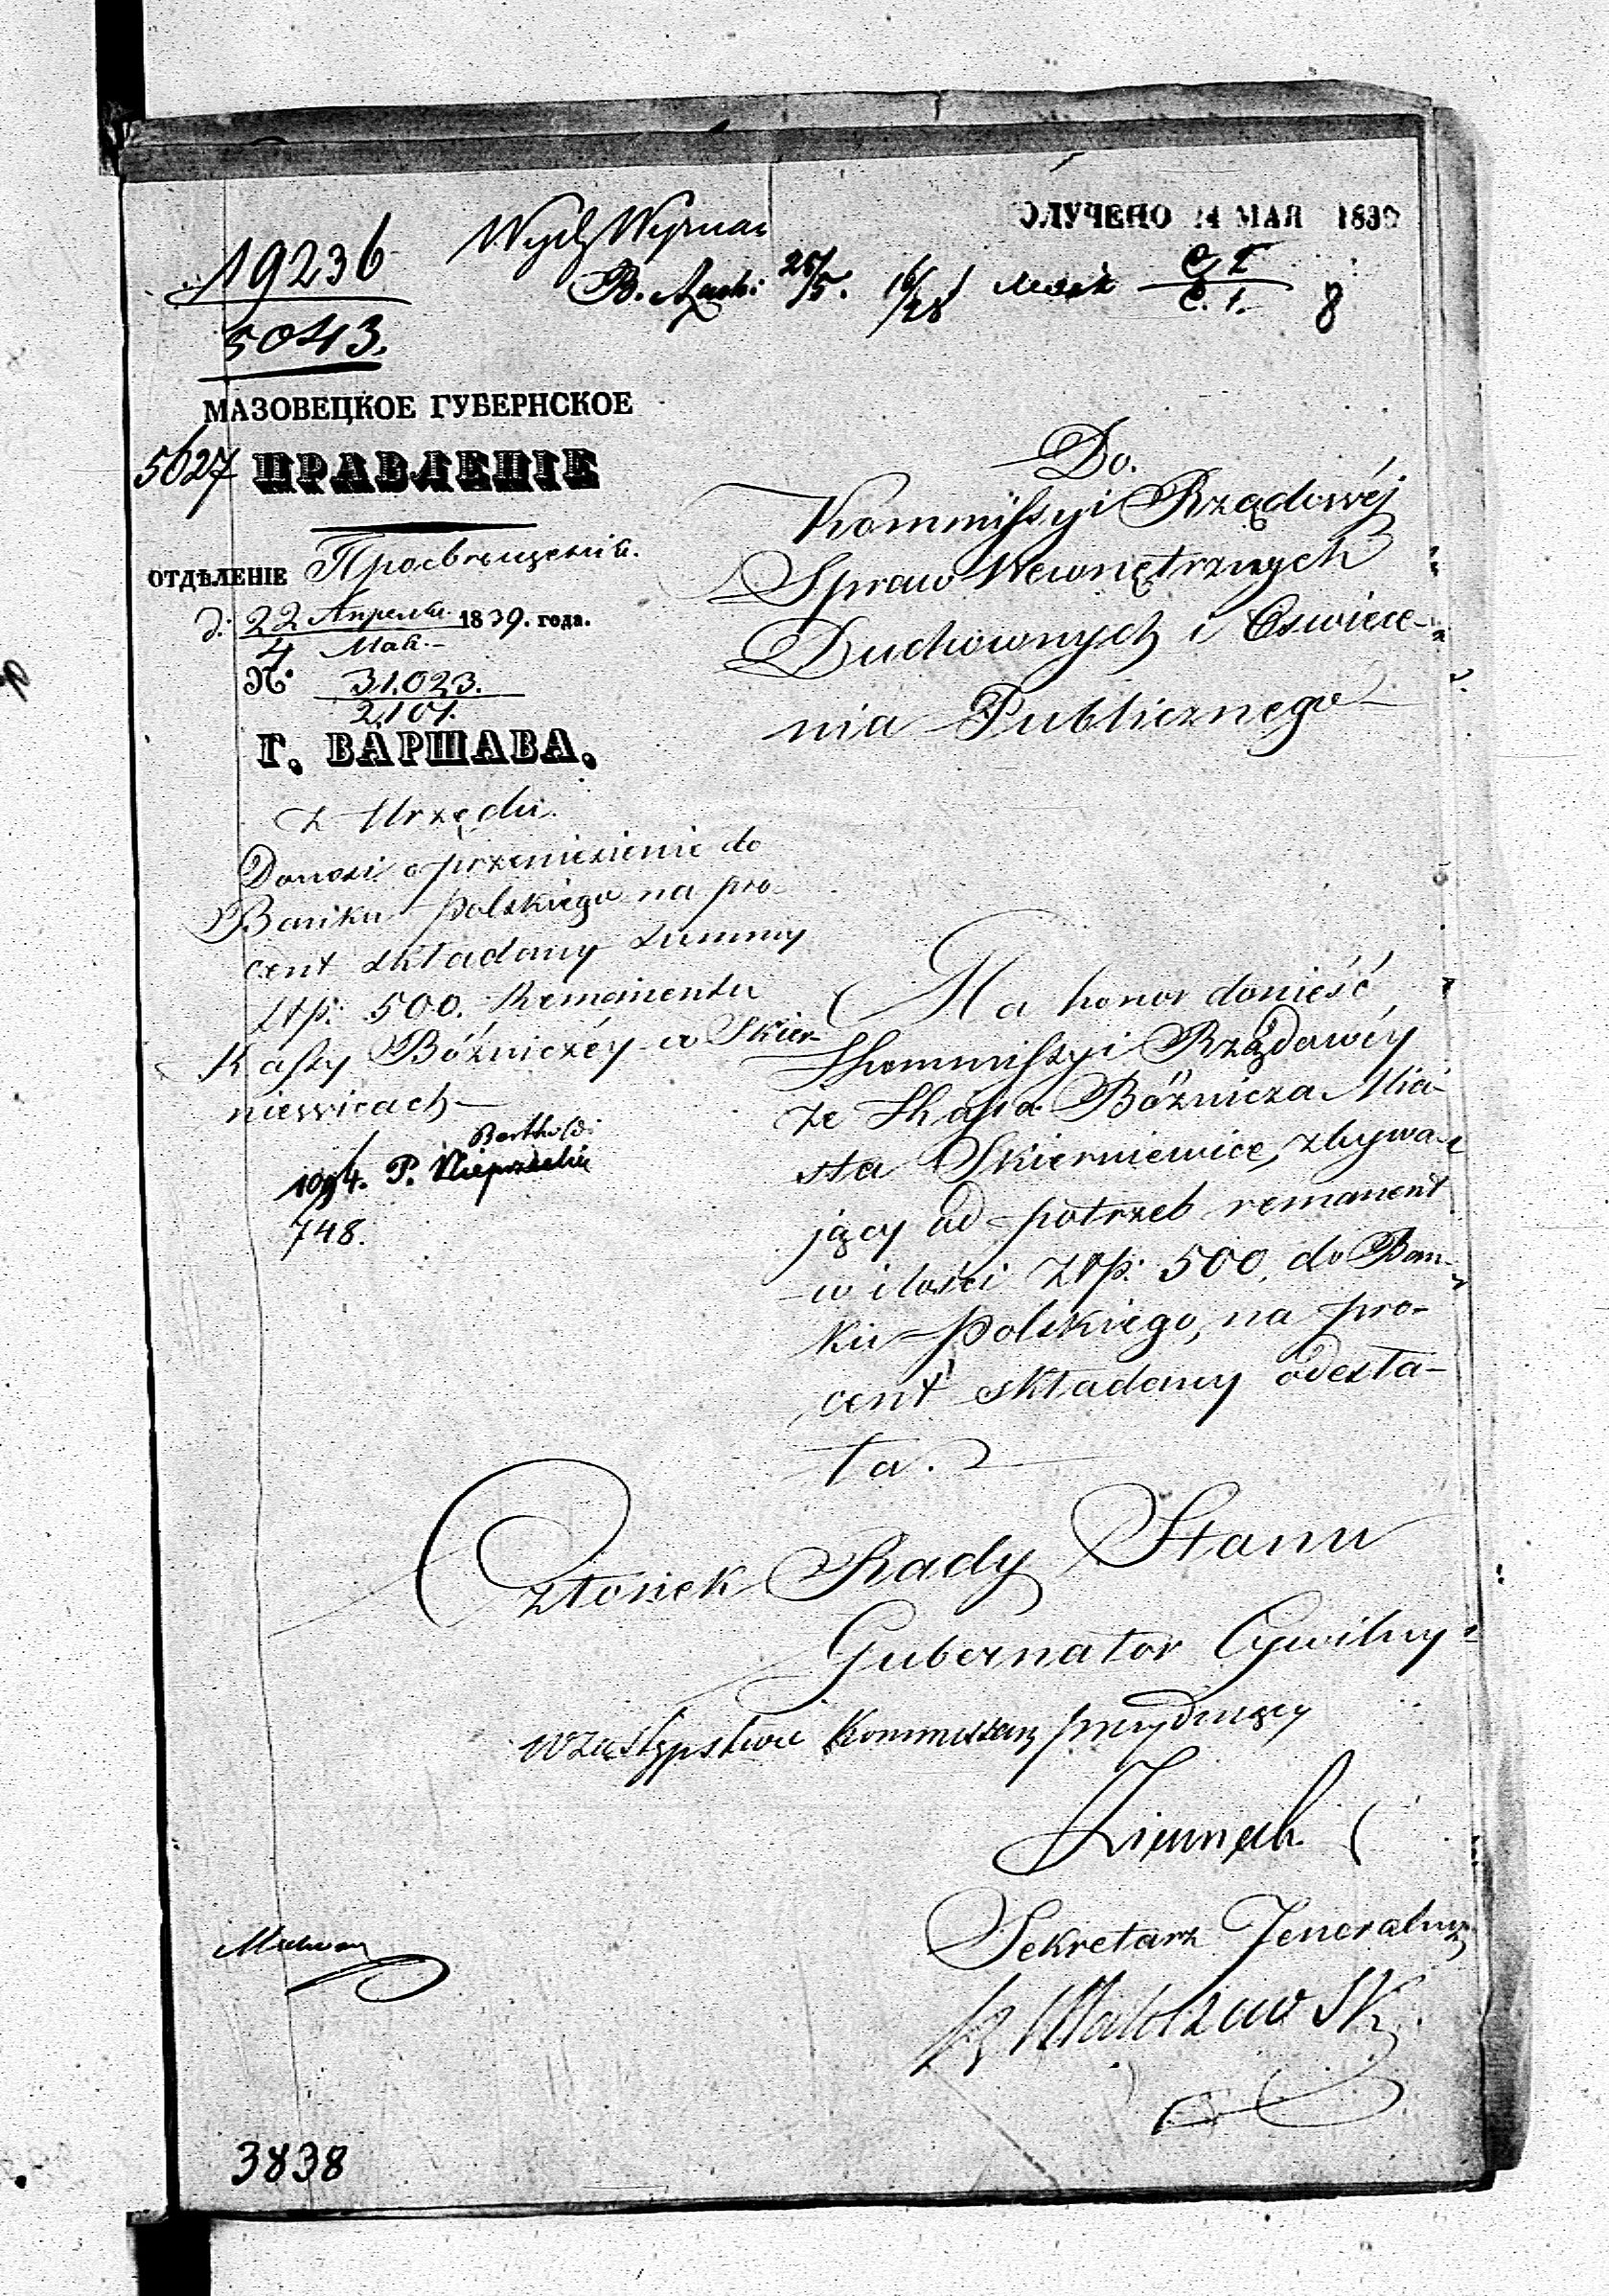 ОЛУЧЕНО 24 МАЯ 1839
19236
5043.
Wydz Wyznań
B. 25/5. 16/28 8
МАЗОВЕЦКОЕ ГУБЕРНСКОЕ
5627 ПРАВЛЕНІЕ
ОТДѢЛЕНІЕ Просвѣщенія.
д: 22 Апрѣля 1839. года.
4 Мая.
№ 31.023.
2.101.
Г. ВАРШАВА.
z Urzędu.
Donosi o przeniesienie do
Banku Polskiego na pro-
cent składany summy
złp: 500. Remanentu
Kassy Bóżniczéy w Skier-
niewicach
Bertholdi
1094. P.
748.
Do.
Kommissyi Rządowéj
Spraw Wewnętrznych
Duchownych i Oswiece-
nia Publicznego
Ma honor donieść
Kommissyi Rządowéy
że Kassa Bóżnicza Mia-
sta Skierniewice, zbywa-
jący od potrzeb remanent
w ilości złp: 500, do Ban-
ku Polskiego, na pro-
cent składany odesła-
ła.
Członek Rady Stanu
Gubernator Cywilny
w Zastępstwie Kommissarz prezyduiący
Sekretarz Jeneralny
3838